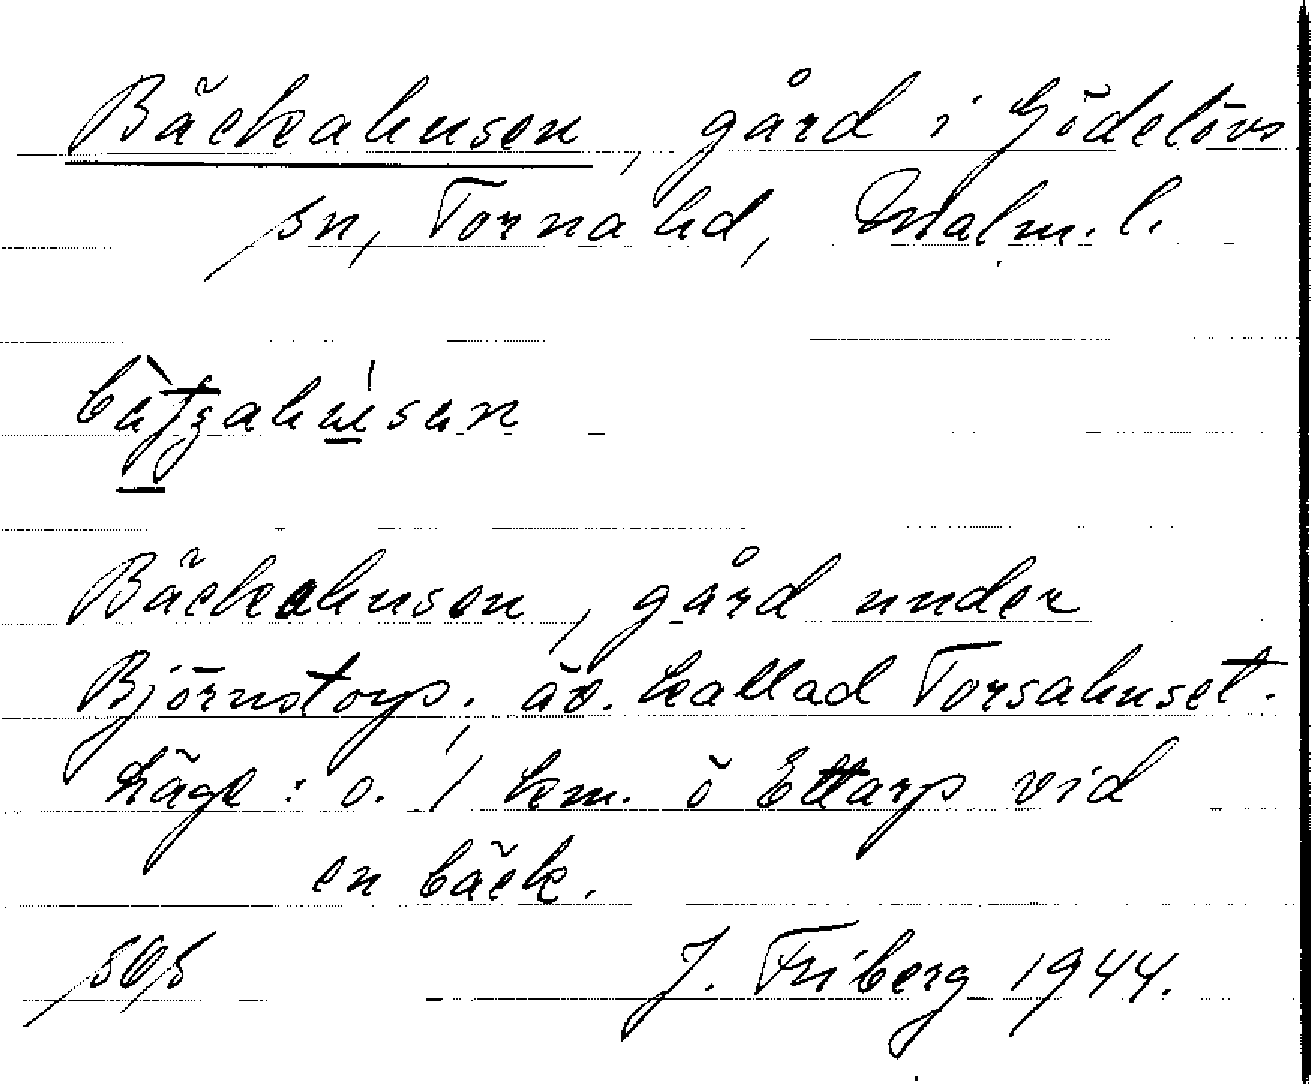 Bäckahusen, gård i Gödelövs
sn, Torna hd, Malm. l.
Bäckahusen, gård under
Björnstorp; äv. kallad Torsahuset.
Läge: o. 1 km. ö Ettarp vid
en bäck.
J. Friberg 1944.